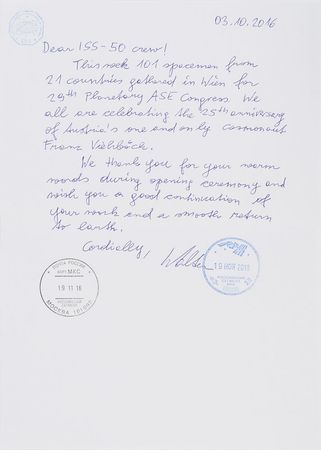 03.10.2016
Dear ISS-50 crew!
This week 101 spacemen from
21 countries gathered in Wien for
29th Planetary ASE Congress. We
all are celebrating the 25th anniversary
of Austria's one and only cosmonaut
Franz Viehböck.
We thank you for your warm
words during opening ceremony and
wish you a good continuation of
your work and a smooth return
to Earth.
Cordially,
ПОЧТА РОССИИ
МКС
19 11 16
МОСКВА
19 НОЯ 2016